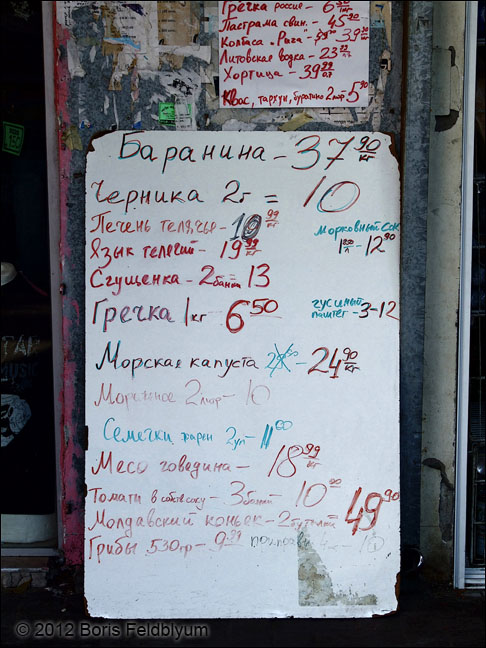 Гречка россие - 6
Пастрама свин. - 45
Колбаса „Рига" - 39
Литовская водка - 23
Хортица - 39
Квас, тархун, буратино 2 5 90
Баранина - 37 90 кг
Черника 2г = 10
Печень теляч. - 10 99 кг
Морковный сок
1 л - 12 90
Язык телячий - 19 99 кг
Сгущенка - 2 банк 13
Гречка 1 кг 6 50
гусиный
паштет - 3 - 12
Морская капуста 24 90 кг
Мороженое 2 - 10
Семечки жарен 2 уп - 11
Месо говедина - 18 99 кг
Томаты в собств соку - 3 банки 10
Молдавский коньек - 2 бутылки 49 90
Грибы 530 гр - 9 99
© 2012 Boris Feldblyum